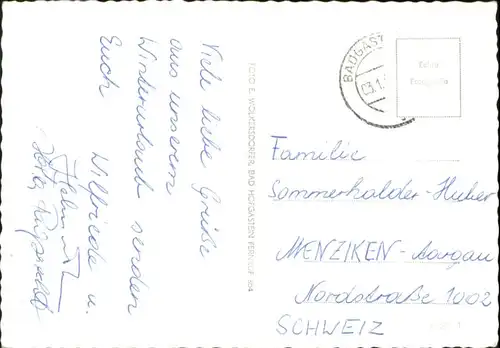 Viele liebe Grüße
aus unserem
Winterurlaub senden
Euch
Wilfriede u.
Helmut
FOTO E. WOLKERSDORFER, BAD HOFGASTEIN
BADGAST
03.1.
Familie
Sommerhalder-Huber
MENZIKEN-Aargau
Nordstraße 1002
SCHWEIZ